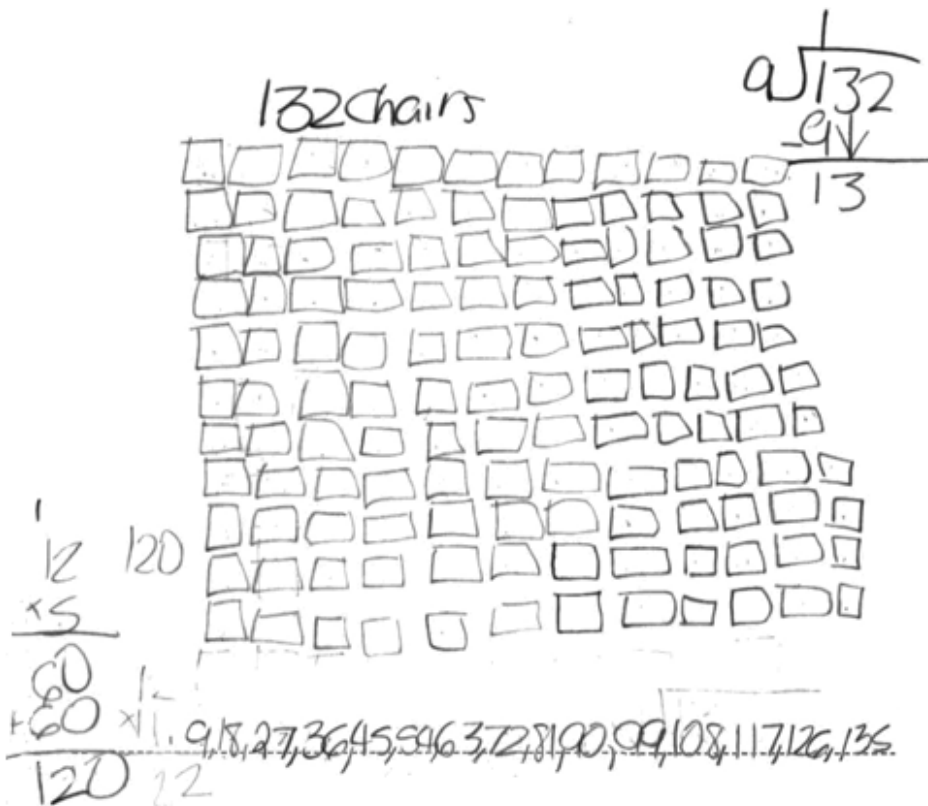 132 Chairs
1
9 132
-9
13
1
12
×5
60
+60
120
120
9,18,27,36,45,54,63,72,81,90,99,108,117,126,135